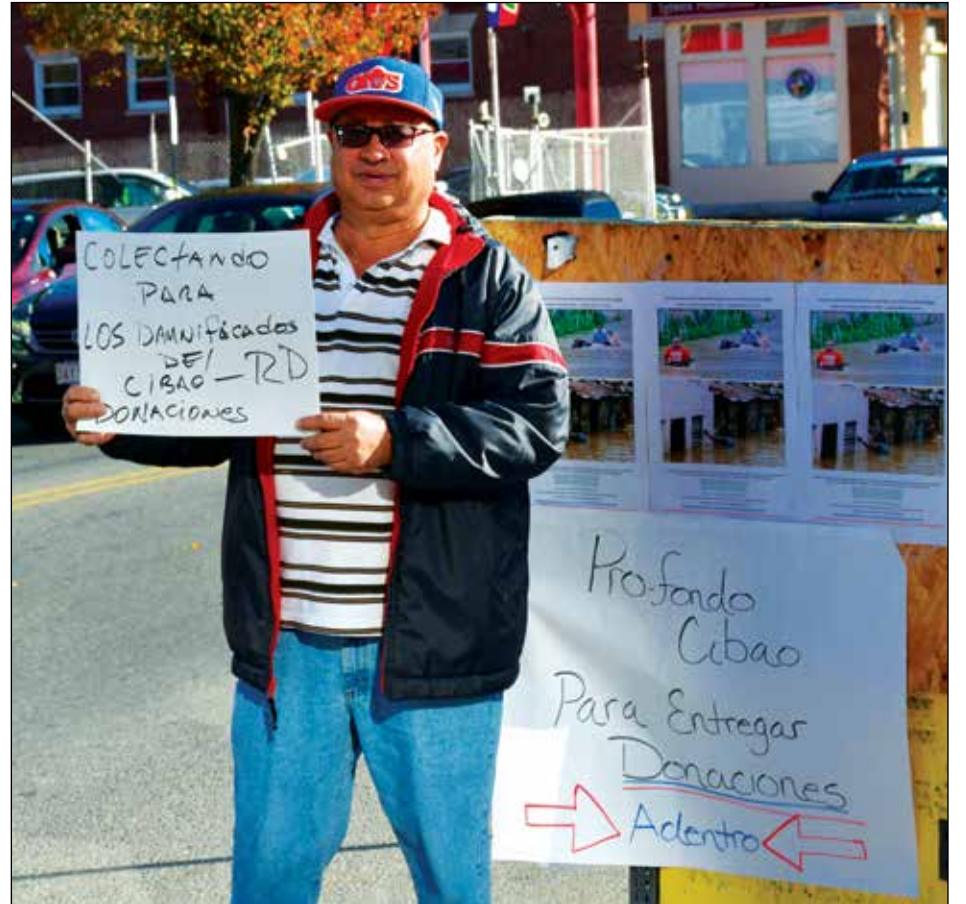 COLECTANDO
PARA
LOS DAMNIFICADOS
DEl
CIBAO — RD
DONACIONES
Pro-fondo
Cibao
Para Entregar
Donaciones
Adentro